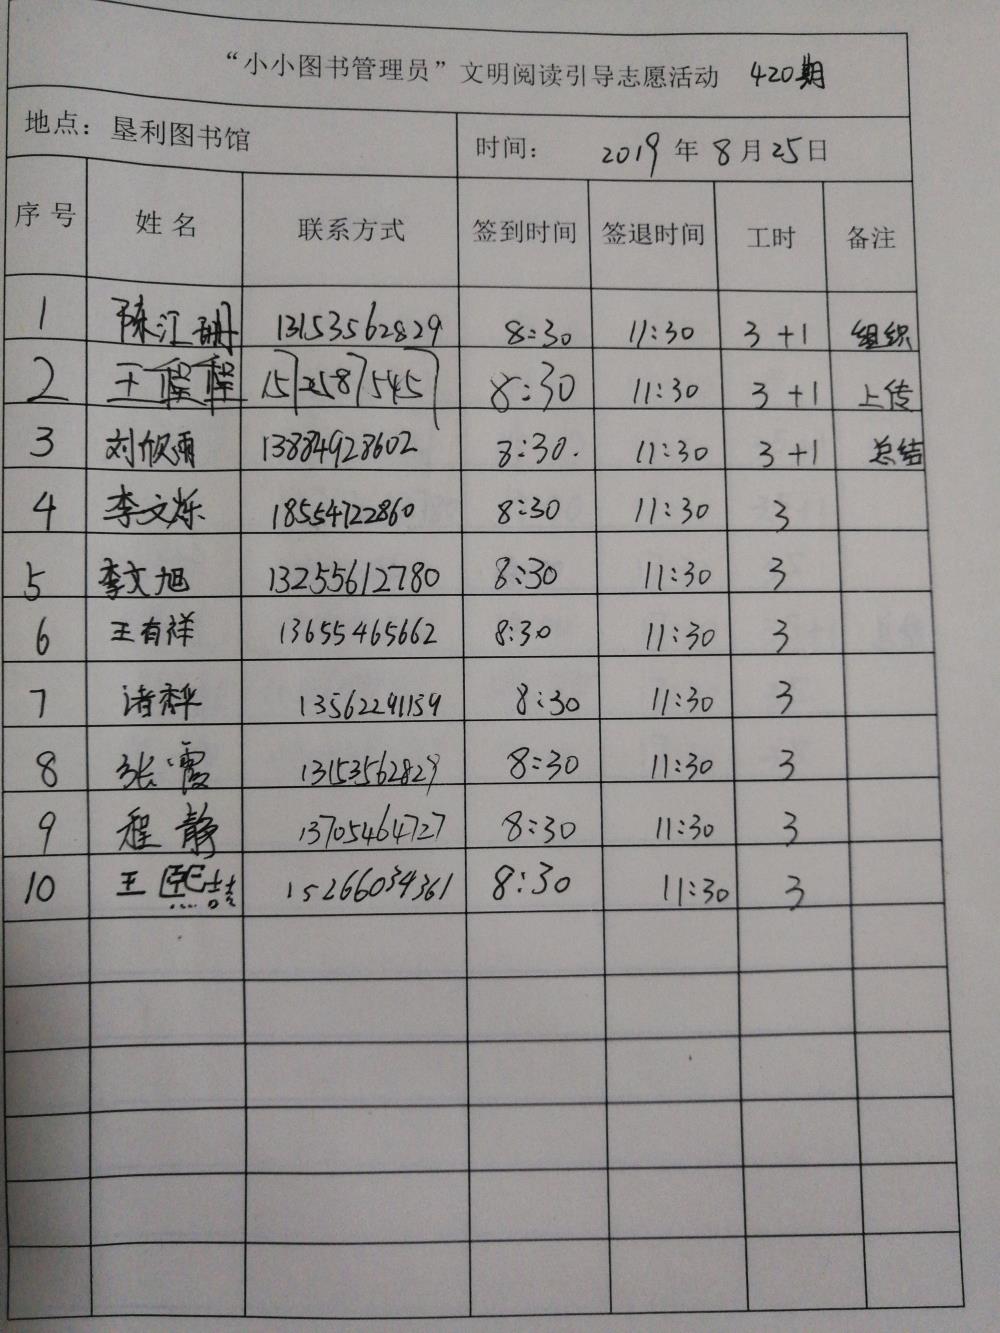 “小小图书管理员”文明阅读引导志愿活动 420期
地点：垦利图书馆 时间： 2019 年 8 月 25 日
序号 姓名 联系方式 签到时间 签退时间 工时 备注
1 陈江珊 13153562829 8:30 11:30 3+1 组织
2 王程程 15725871545 8:30 11:30 3+1 上传
3 刘欣雨 13884928602 8:30. 11:30 3+1 总结
4 李文烁 18554722860 8:30 11:30 3
5 李文旭 13255612780 8:30 11:30 3
6 王有祥 13655465662 8:30 11:30 3
7 13562291159 8:30 11:30 3
8 张霞 13153562829 8:30 11:30 3
9 程静 13705464727 8:30 11:30 3
10 王熙喆 15266034361 8:30 11:30 3